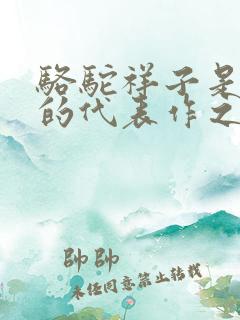 駱駝祥子是
的代表作之
帥帥
未经同意禁止转载